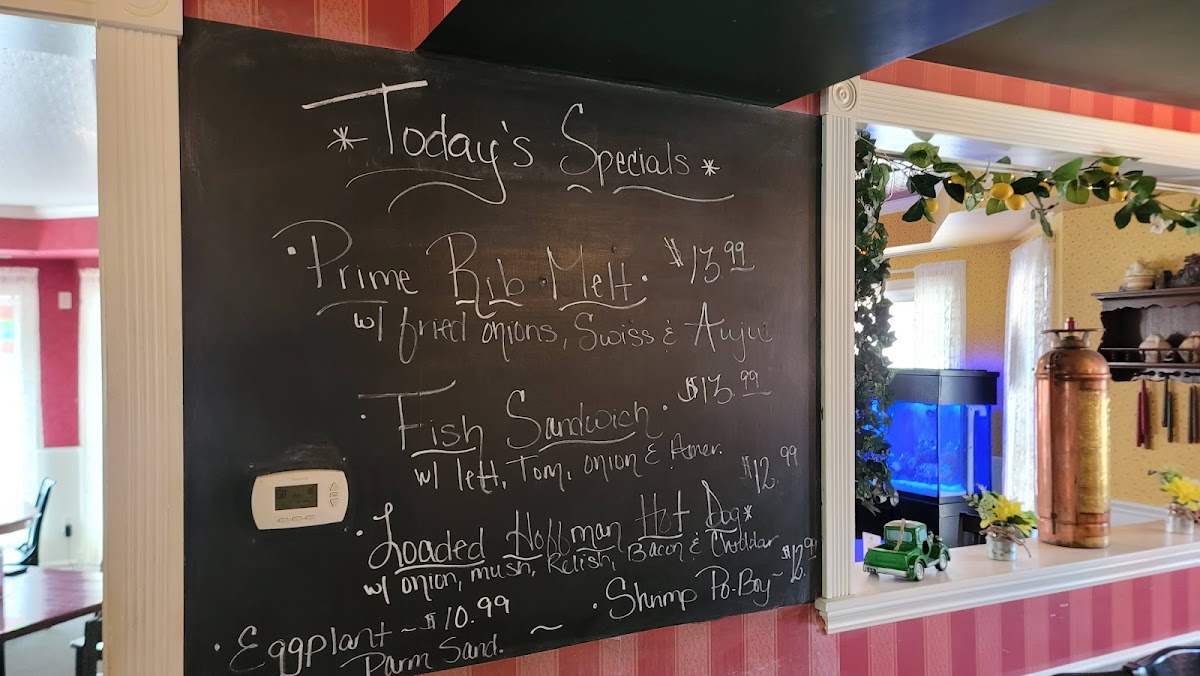 *Today's Specials*
• Prime Rib Melt • $13.99
w/ fried onions, Swiss & Auju
• Fish Sandwich • $13.99
w/ lett, Tom, onion & Amer.
• Loaded Hoffman Hot Dog* $12.99
w/ onion, mush, Relish, Bacon & Cheddar
• Eggplant ~ $10.99
Parm Sand. ~
• Shrimp Po-Boy ~ $12.99